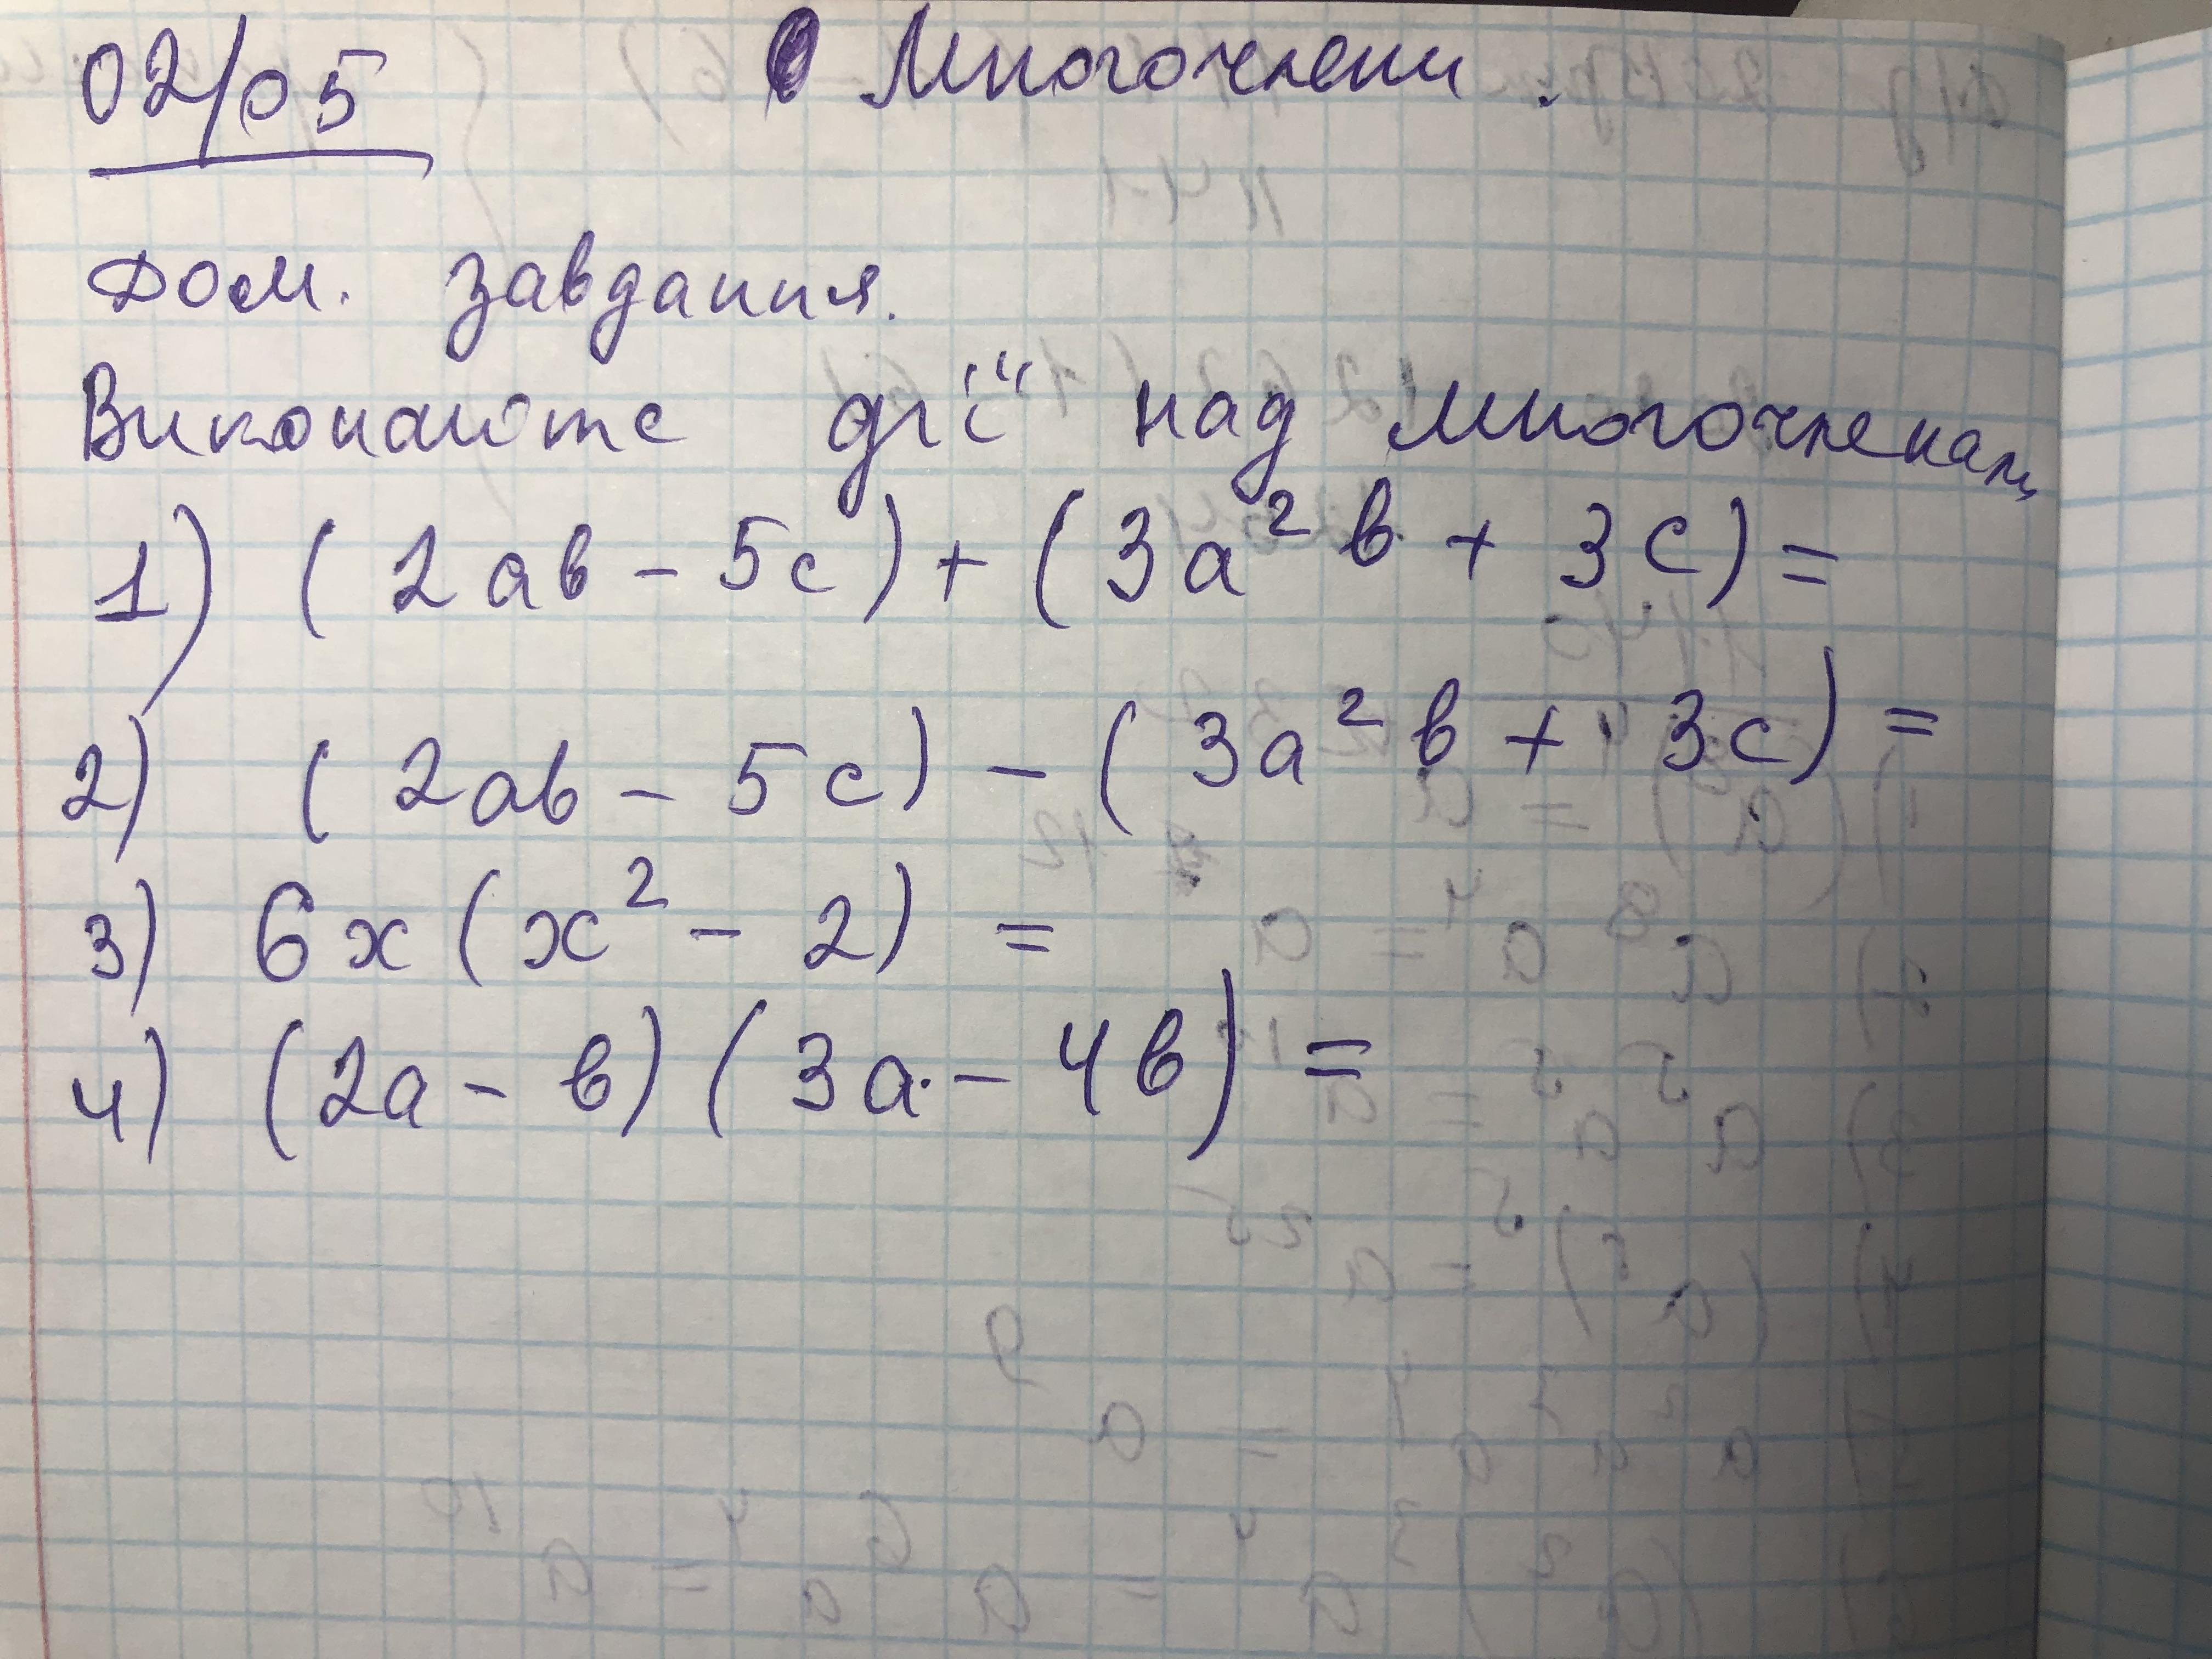 02/05 Многочлени.
Дом. завдання.
Виконайте дії над многочленами
1) (2ab - 5c) + (3a²b + 3c) =
2) (2ab - 5c) - (3a²b + 3c) =
3) 6x(x² - 2) =
4) (2a - b)(3a - 4b) =